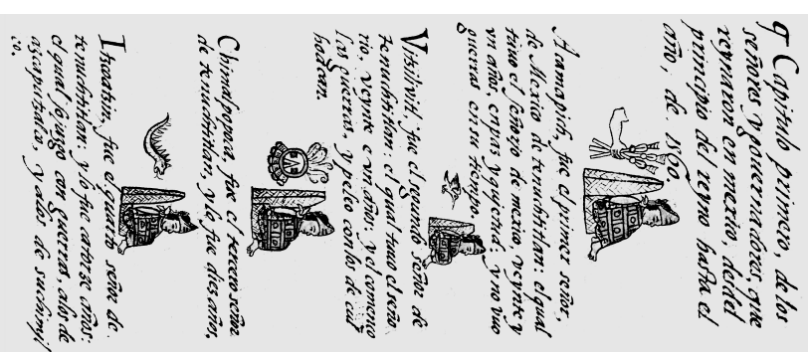 ¶ Capitulo primero, de los
señores y gouernadores, que
reynaron en mexico, desdel
principio del reyno hasta el
año, de
fue el primer señor,
de Mexico de tenuchtitlan: el qual
tuuo el señorjo de mexico, veynte y
vn años, en paz y quietud, y no vuo
guerras en su tiempo.
fue el segundo señor de
tenuchtitlan: el qual tuuo el seño
rio, veynte e vn años: y el començo
las guerras, y peleo con los de cul
hoacan.
Chimalpopoca fue el tercero señor
de tenuchtitlan, y lo fue diez años,
fue el quarto señor de
tenuchtitlan: y lo fue catorze años:
el qual sojuzgo con guerras, a los de
azcaputzalco, y a los, de suchimjl
co.